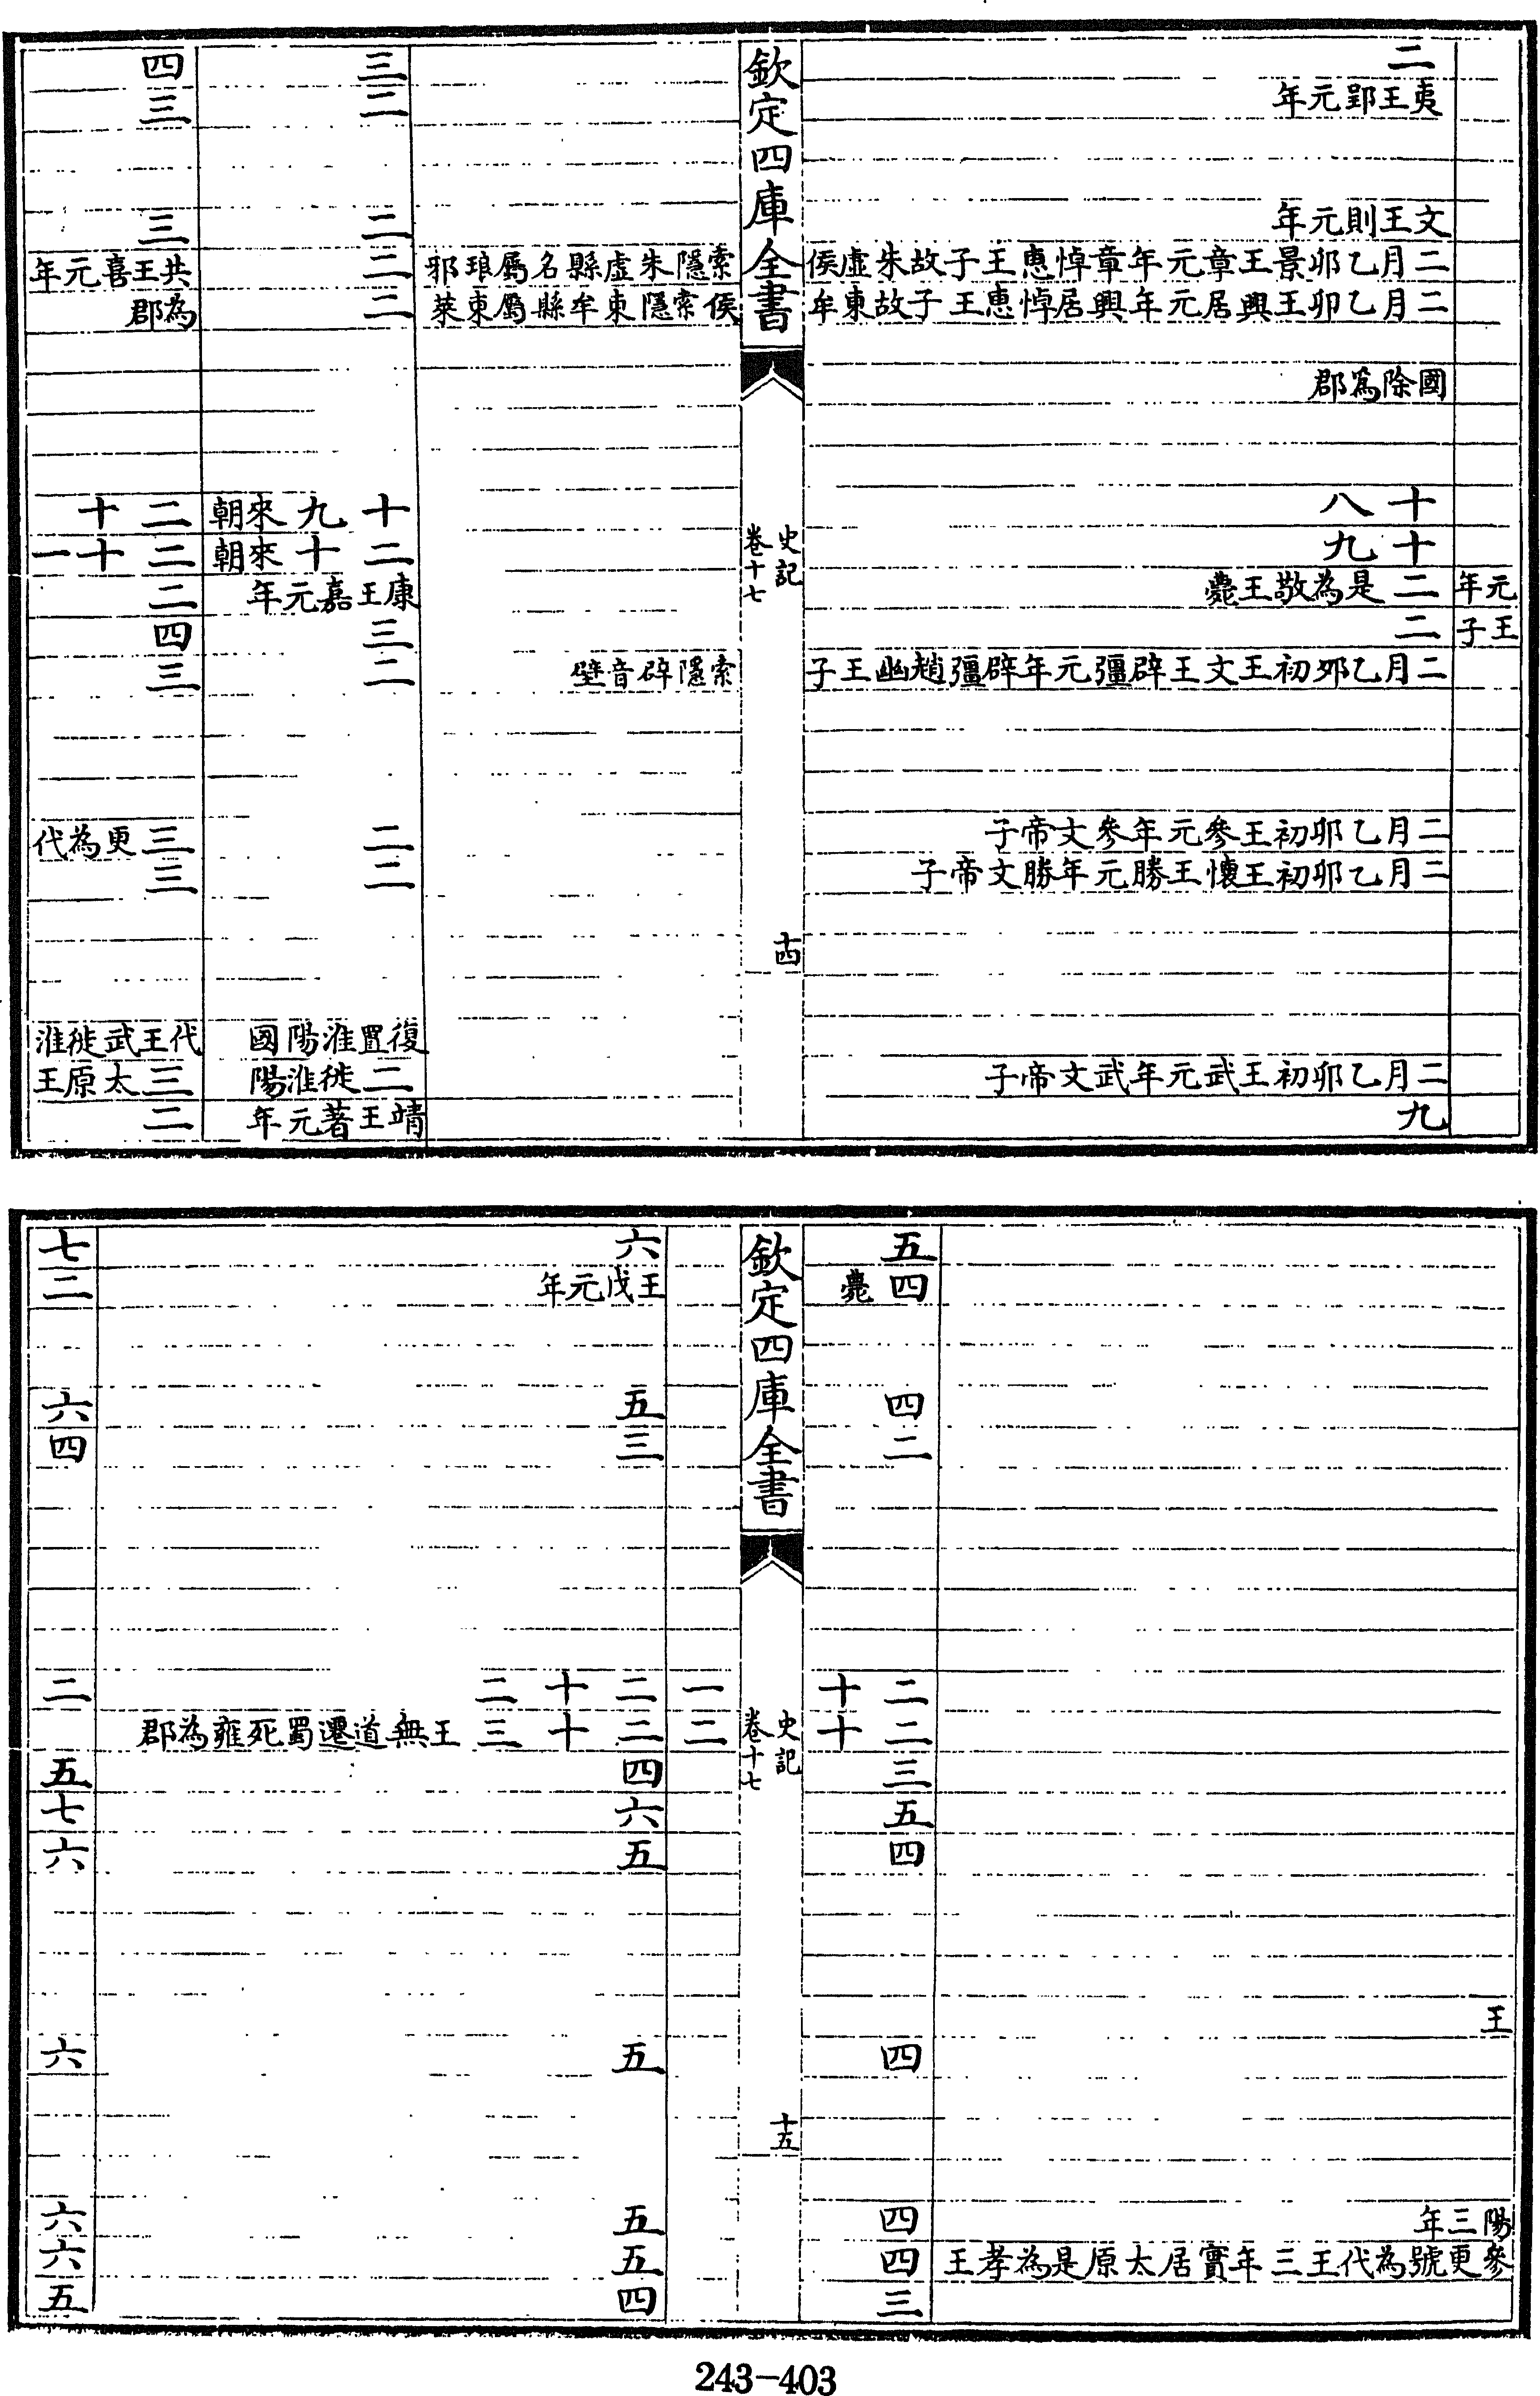 元年
王子
二
夷王郢元年
文王則元年
二月乙卯景王章元年章悼惠王子故朱虛侯
二月乙卯王興居元年興居悼惠王子故東牟
國除為郡
十八
十九
二是為敬王薨
二
二月乙夘初王文王辟彊元年辟彊趙幽王子
二月乙卯初王參元年參文帝子
二月乙卯初王懷王勝元年勝文帝子
二月乙卯初王武元年武文帝子
九
欽定四庫全書
史記
卷十七
十四
索隱朱虛縣名屬琅邪
侯索隱東牟縣屬東萊
索隱辟音壁
三
二
二
二
二
十九來朝
二十來朝
康王嘉元年
三
二
二
二
復置淮陽國
二徙淮陽
靖王著元年
四
三
三
共王喜元年
為郡
二十
二十一
二
四
三
三更為代
三
代王武徙淮
三太原王
二
王
陽三年
參更號為代王三年實居太原是為孝王
五
四薨
四
二
二十
二十
三
五
四
四
四
四
三
欽定四庫全書
史記
卷十七
十五
一
二
六
王戊元年
五
三
二十二
二十三王無道遷蜀死雍為郡
四
六
五
五
五
五
四
七
二
六
四
二
五
七
六
六
六
六
五
243-403